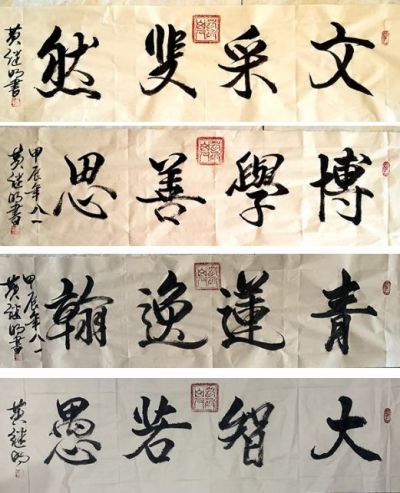 文采斐然
黄继明书
博學善思
甲辰年八一
黄继明书
青蓮逸翰
甲辰年八一
黄继明书
大智若愚
黄继明